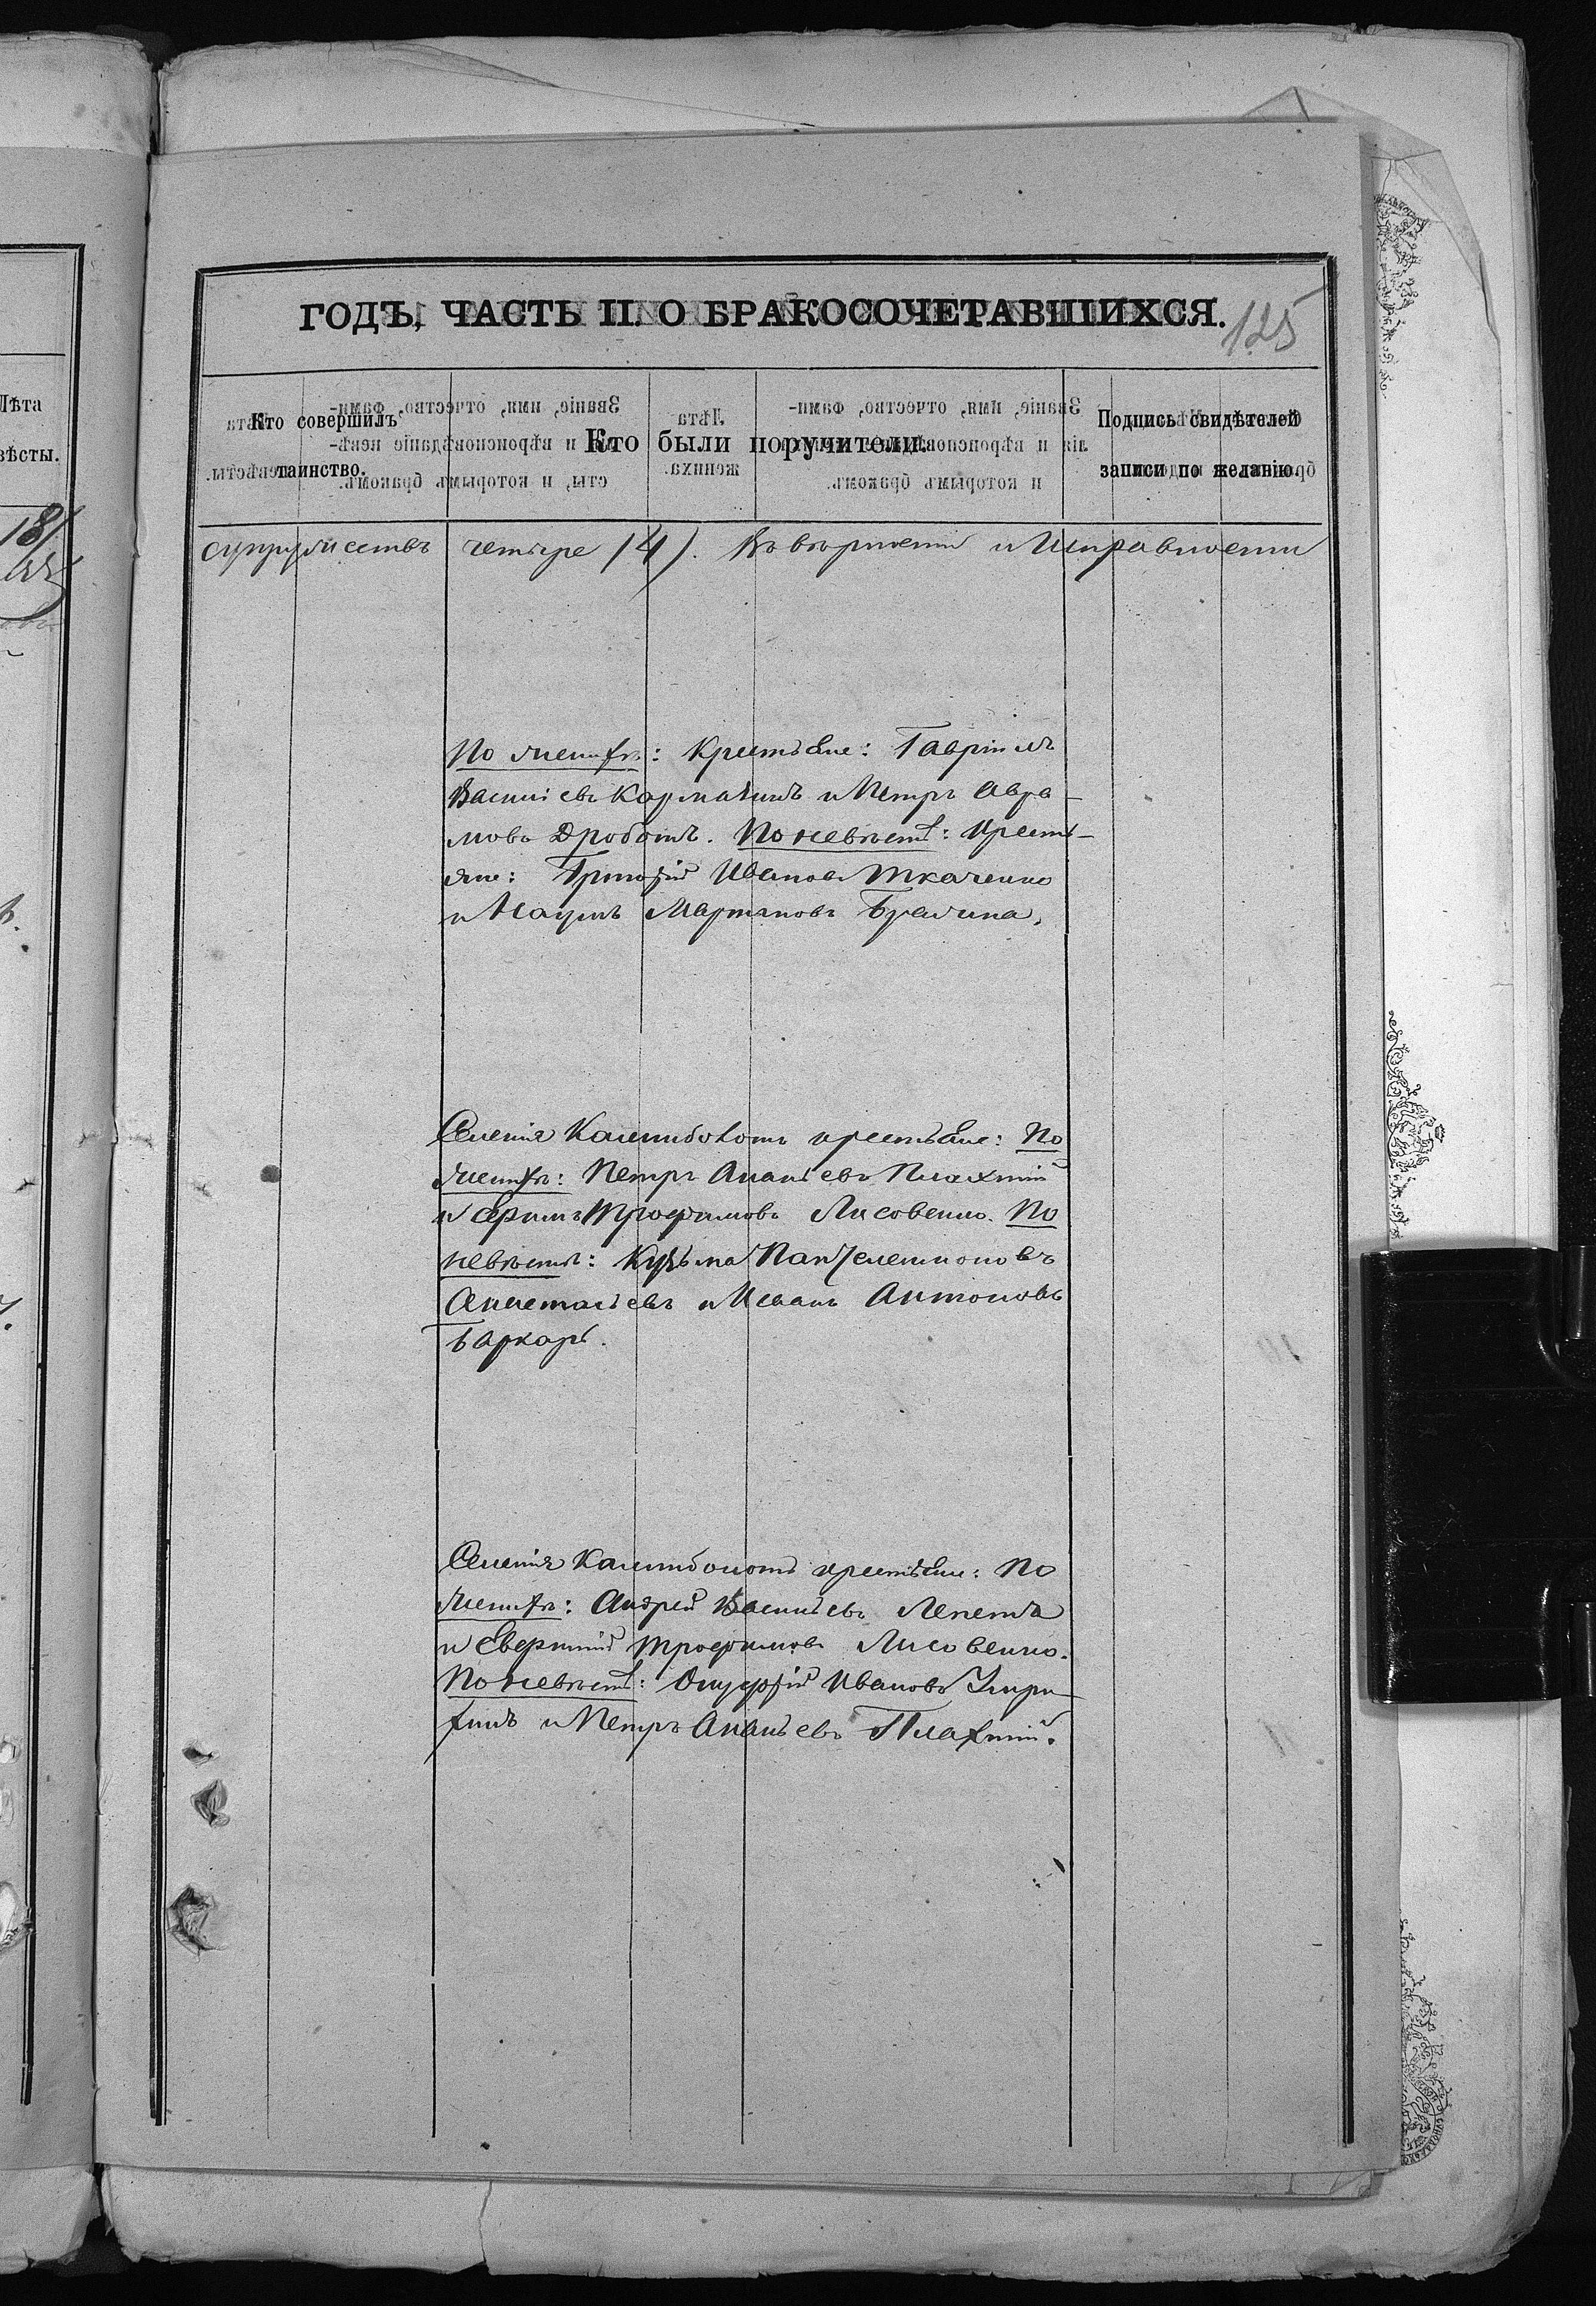 ГОДЪ, ЧАСТЬ II. О БРАКОСОЧЕТАВШИХСЯ.
125
Лѣта
вѣсты.
Кто совершилъ
таинство.
Кто были поручители.
Подпись свидѣтелей
записи по желанію.
супружествъ четыре (4). Въ вѣрности и исправности
По женихѣ: Крестьяне: Гавріилъ
Василіевъ и Петръ Авра-
мовъ Дроботъ. По невѣстѣ: Кресть-
яне: Григорій Ивановъ Ткаченко
и Наумъ Мартиновъ
Селенія крестьяне: По
женихѣ: Петръ Ананіевъ Плахтій
и Трофимовъ Лисовенко. По
невѣстѣ: Кузьма Пантелеимоновъ
и Иванъ Антоновъ
Баркарь.
Селенія крестьяне: По
женихѣ: Андрей Васильевъ Лепета
и Трофимовъ Лисовенко.
По невѣстѣ: Онуфрій Ивановъ
и Петръ Ананьевъ Плахтій.